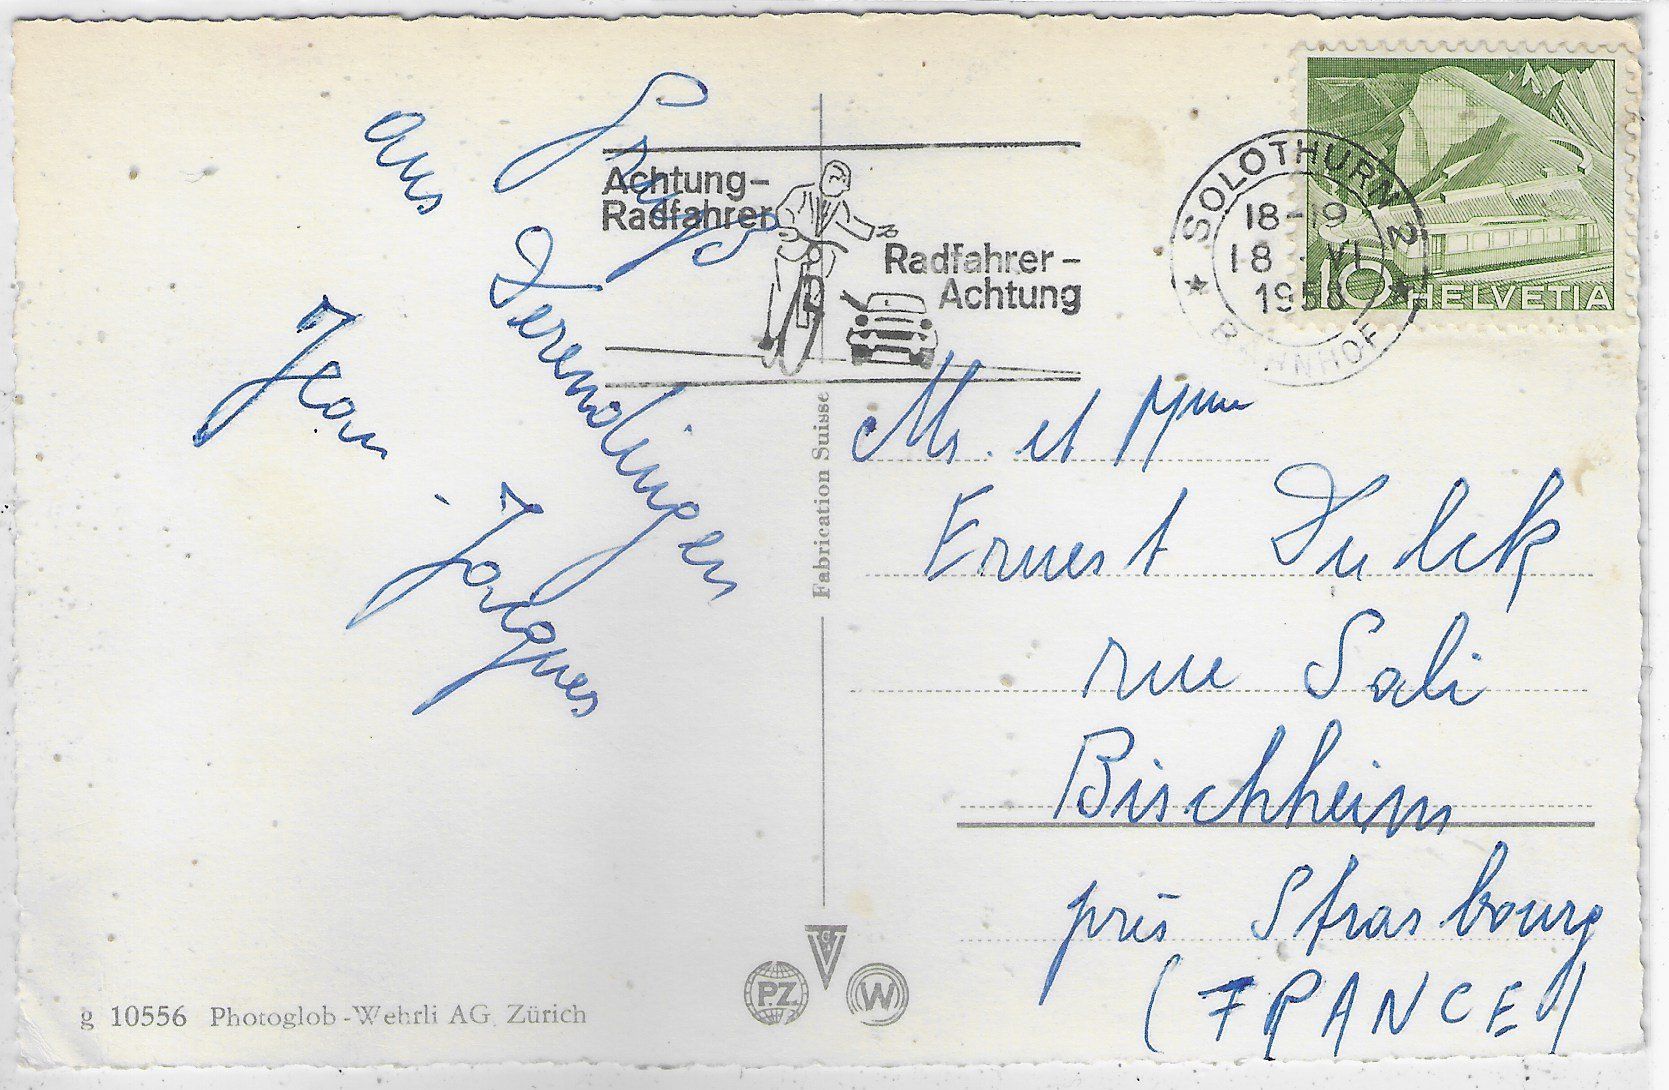 Grüße
aus Derendingen
Jean - Jacques
Achtung-
Radfahrer
Radfahrer-
Achtung
SOLOTHURN 2
18-19
18.VI
1958
BAHNHOF
10 HELVETIA
Fabrication Suisse
Mr. et Mme
Ernest Dulck
rue Sali
Bischheim
près Strasbourg
(FRANCE)
g 10556 Photoglob-Wehrli AG. Zürich
P.Z.
G
V
W